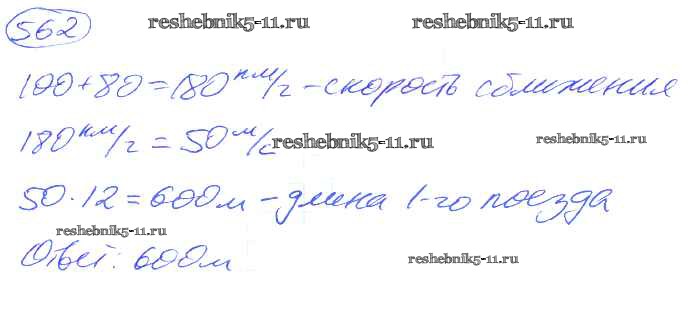 562 reshebnik5-11.ru reshebnik5-11.ru
100+80=180 км/ч - скорость сближения
180 км/ч = 50 м/с reshebnik5-11.ru reshebnik5-11.ru
50·12=600м - длина 1-го поезда
reshebnik5-11.ru
Ответ: 600м reshebnik5-11.ru